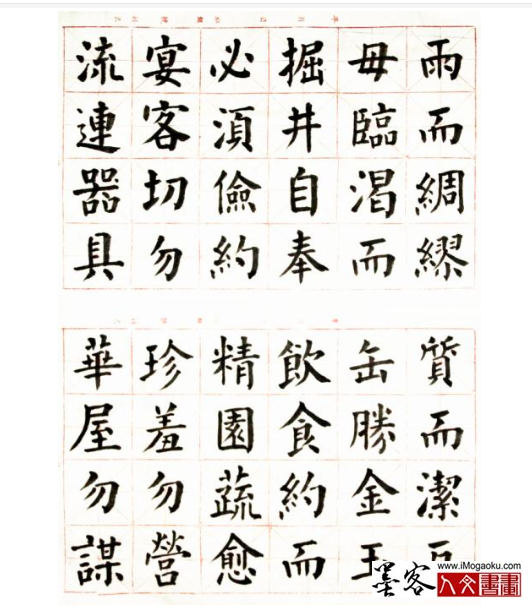 雨而綢繆
毋臨渴而
掘井自奉
必湏儉約
宴客切勿
流連器具
質而潔瓦
缶勝金玉
飲食約而
精園蔬愈
珍羞勿營
華屋勿謀
墨客
www.iMogaoku.com
人文書畫